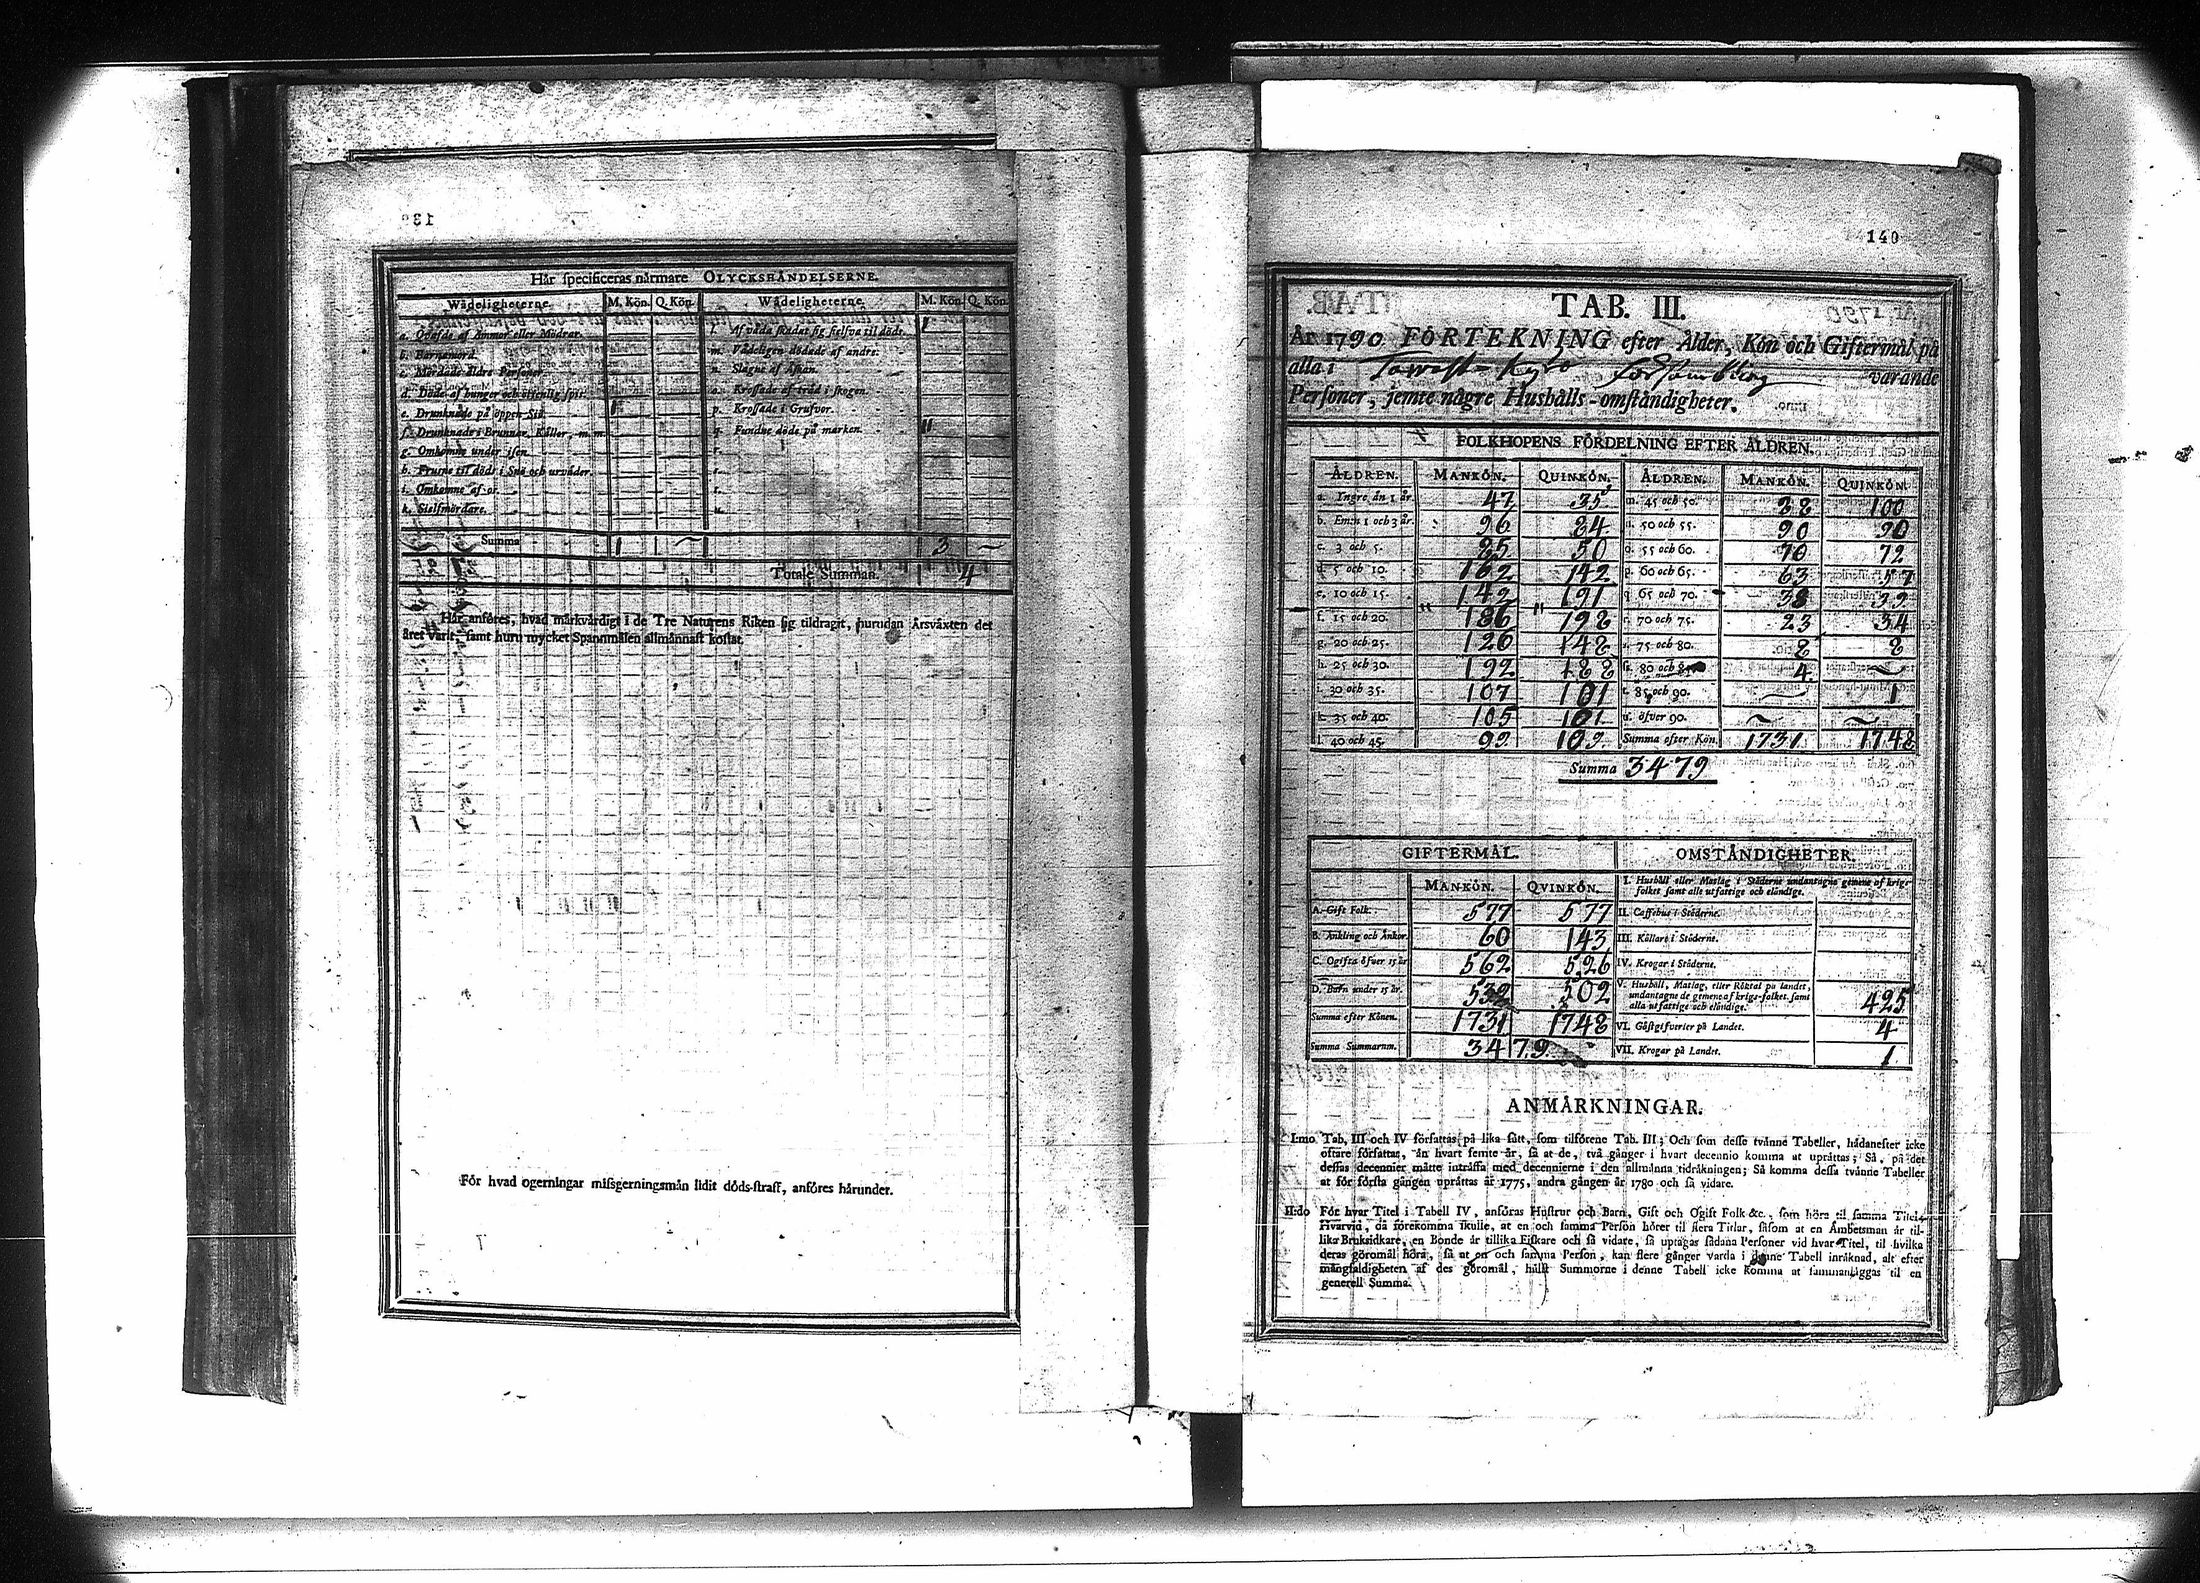 139
Hår specificeras nårmare OLYCKSHÅNDELSERNE.
Wådeligheterne. M. Kön. Q. Kön. Wådeligheterne. M. Kön. Q. Kön.
a. Qvafde af Ammor eller Mödrar. l. Af våda skadat sig sielfva til döds. 1
b. Barnamord. m. Vådeligen dödade af andre.
c. Mördade åldre Personer. n. Slagne af Åskan.
d. Döde af hunger och ömkelig spis. o. Krossade af tråd i skogen.
e. Drunknade på öppen Siö. 1 p. Krossade i Grufvor.
f. Drunknade i Brunnar, Kållor, m. m. q. Fundne döde på marken. 11
g. Omkomne under isen. r.
h. Frusne til döds i Snö och urvåder. s.
i. Omkomne af os. t.
k. Sielfmördare. u.
Summa 1 ~ 3 ~
Totale Summan. 4
Hår anföres, hvad mårkvårdigt i de Tre Naturens Riken sig tildragit, hurudan Årsvåxten det
året varit, samt huru mycket Spannmålen allmånnast kostat.
För hvad ogerningar missgerningsmån lidit döds-straff, anföres hårunder.
140
TAB. III.
År 1790 FÖRTEKNING efter Ålder, Kön och Giftermål på
alla i Tawast-Kyro Församling varande
Personer, jemte några Hushålls-omståndigheter.
FOLKHOPENS FÖRDELNING EFTER ÅLDREN.
ÅLDREN. MANKÖN. QUINKÖN. ÅLDREN. MANKÖN. QUINKÖN.
a. Ingre ån 1 år. 47 35 m. 45 och 50. 88 100
b. Em:n 1 och 3 år. 96 84 n. 50 och 55. 90 90
c. 3 och 5. 85 50 o. 55 och 60. 70 72
d. 5 och 10. 162 142 p. 60 och 65. 63 57
e. 10 och 15. 142 191 q. 65 och 70. 38 39
f. 15 och 20. 186 198 r. 70 och 75. 23 34
g. 20 och 25. 126 148 s. 75 och 80. 8 8
h. 25 och 30. 192 188 80 och 85. 4 ~
i. 30 och 35. 107 101 t. 85 och 90. ~ 1
k. 35 och 40. 105 101 u. öfver 90. ~ ~
l. 40 och 45. 99 109 Summa efter Kön. 1731 1748
Summa 3479
GIFTERMÅL. OMSTÅNDIGHETER.
MANKÖN. QVINKÖN. I. Hushåll eller Matlag i Ståderne undantagne gemene af krigs-
folket samt alle utfattige och elåndige.
A. Gift Folk. 577 577 II. Caffehus i Ståderne.
B. Ånkling och Ånkor. 60 143 III. Kållare i Ståderne.
C. Ogifta öfver 15 år 562 526 IV. Krogar i Ståderne.
D. Barn under 15 år. 532 502 V. Hushåll, Matlag, eller Röktal på landet,
undantagne de gemene af krigs-folket, samt
alla utfattige och elåndige. 425
Summa efter Könen. 1731 1748 VI. Gåstgifverier på Landet. 4
Summa Summarum. 3479 VII. Krogar på Landet. 1
ANMÅRKNINGAR.
I:mo Tab. III och IV författas på lika sått, som tilförene Tab. III; Och som desse tvånne Tabeller, hådanefter icke
oftare författas, ån hvart femte år, så at de, två gånger i hvart decennio komma at upråttas; Så, på det
dessas decennier måtte intråffa med decennierne i den allmånna tidråkningen; Så komma dessa tvånne Tabeller
at för första gången upråttas år 1775, andra gången år 1780 och så vidare.
II:do För hvar Titel i Tabell IV, anföras Hustrur och Barn, Gift och Ogift Folk &c., som höra til samma Titel.
Hvarvid, då förekomma skulle, at en och samma Person hörer til flera Titlar, såsom at en Åmbetsman år til-
lika Bruksidkare, en Bonde år tillika Fiskare och så vidare, så uptagas sådana Personer vid hvar Titel, til hvilka
deras göromål höra, så at en och samma Person, kan flere gånger varda i denne Tabell inråknad, alt efter
mångfaldigheten af des göromål, hålst Summorne i denne Tabell icke komma at sammanlåggas til en
generell Summa.